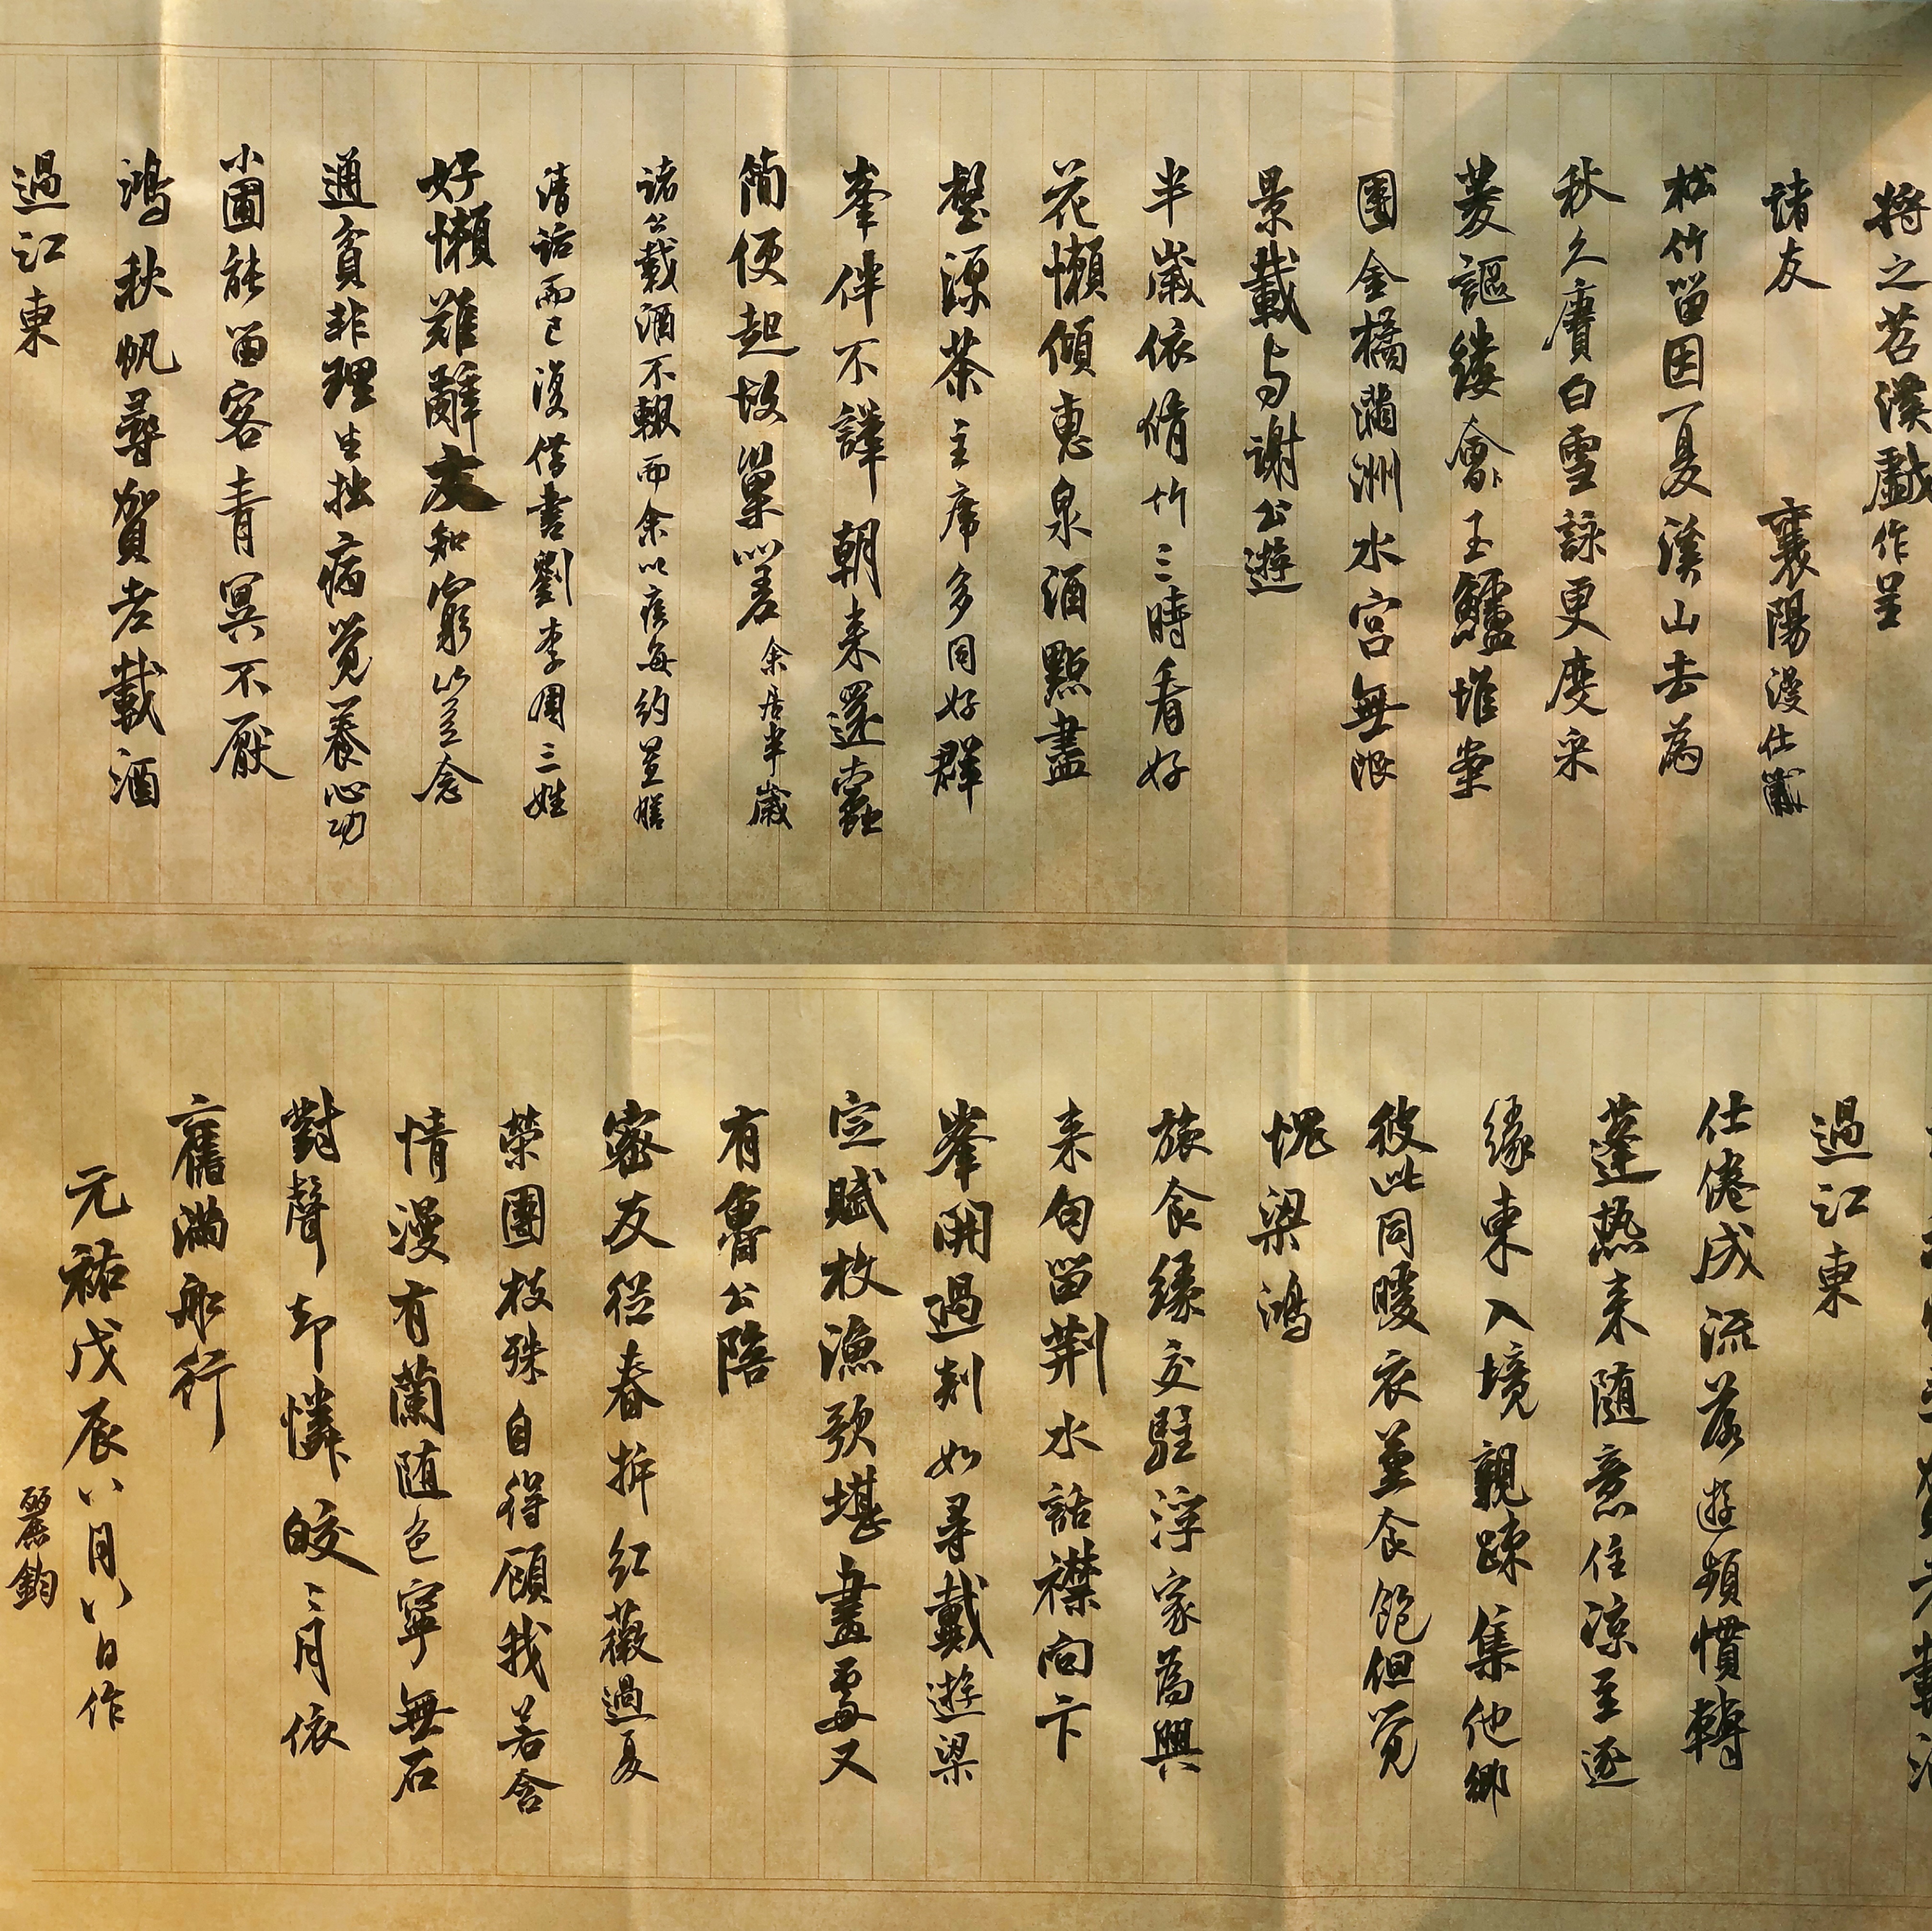 將之苕溪戲作呈
諸友　襄陽漫仕黻
松竹留因夏溪山去為
秋久賡白雪詠更度采
菱謳縷會玉鱸堆案
團金橘滿洲水宮無限
景載与謝公遊
半歲依脩竹三時看好
花懶傾惠泉酒點盡
壑源茶主席多同好群
峯伴不譁朝来還蠹
簡便起故巢嗟余居半歲
諸公載酒不輟而余以疾每約置膳
清話而已復借書劉李周三姓
好懶難辭友知窮豈念
通貧非理生拙病覺養心功
小圃能留客青冥不厭
鴻秋帆尋賀老載酒
過江東
過江東
仕倦成流落遊頻慣轉
蓬熱来隨意住凉至逐
緣東入境親疎集他鄉
彼此同暖衣兼食飽但覺
愧梁鴻
旅食緣交駐浮家為興
来句留荆水話襟向卞
峯開過剡如尋戴遊梁
定賦枚漁歌堪畫處又
有魯公陪
密友從春拆紅薇過夏
榮團枝殊自得顧我若含
情漫有蘭随色寧無石
對聲却憐皎三月依
舊滿舩行
元祐戊辰八月八日作
麗鈞